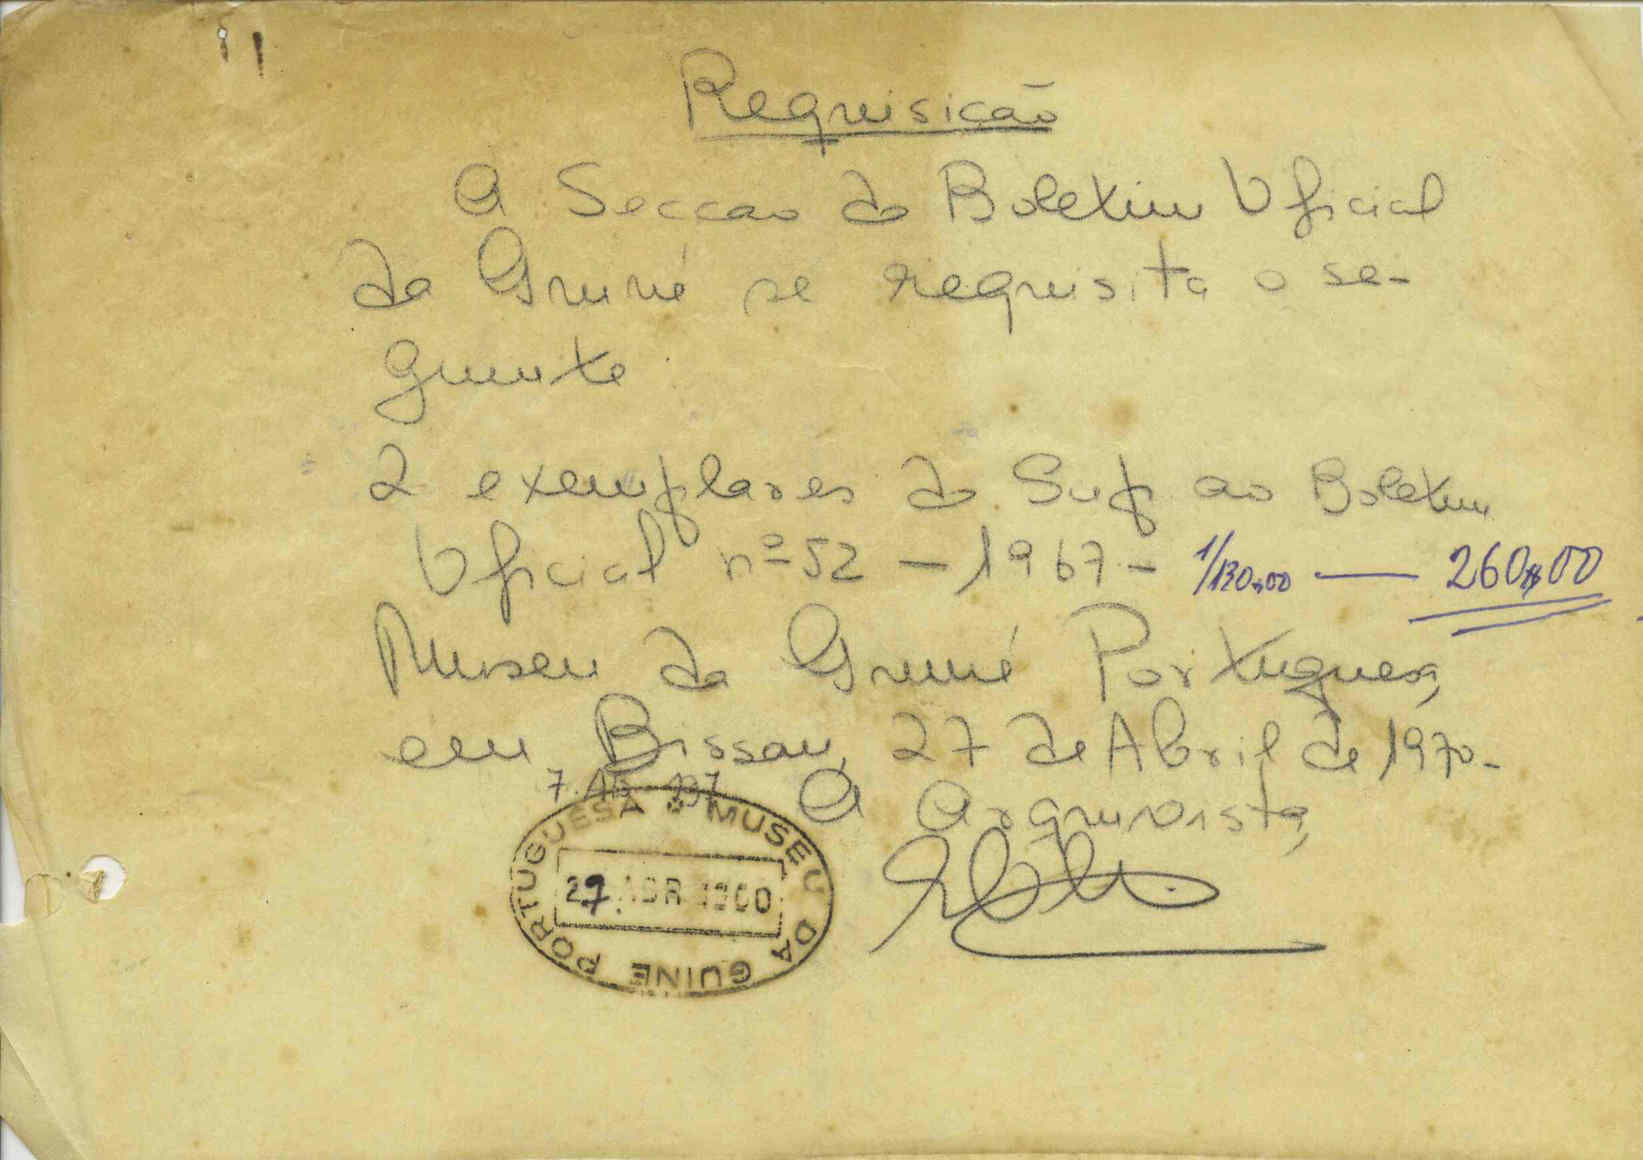 Requisição
A Seccao do Boletim Oficial
da Guiné se requisita o se-
guinte
2 exemplares do Sup ao Boletim
Oficial nº 52 – 1967 – 1/130$00 — 260$00
Museu da Guiné Portuguesa,
em Bissau, 27 de Abril de 1970.
A Arquivista,
MUSEU DA GUINÉ PORTUGUESA
27 ABR